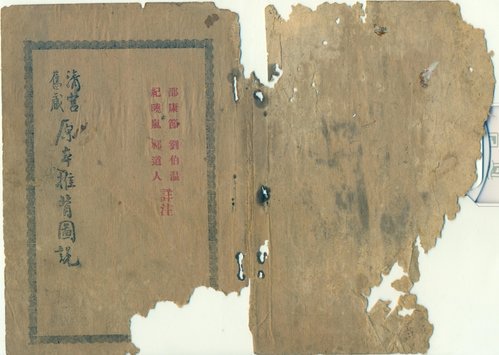 邵康節 劉伯温
紀曉嵐 道人
詳注
清宮
舊藏
原本推背圖說